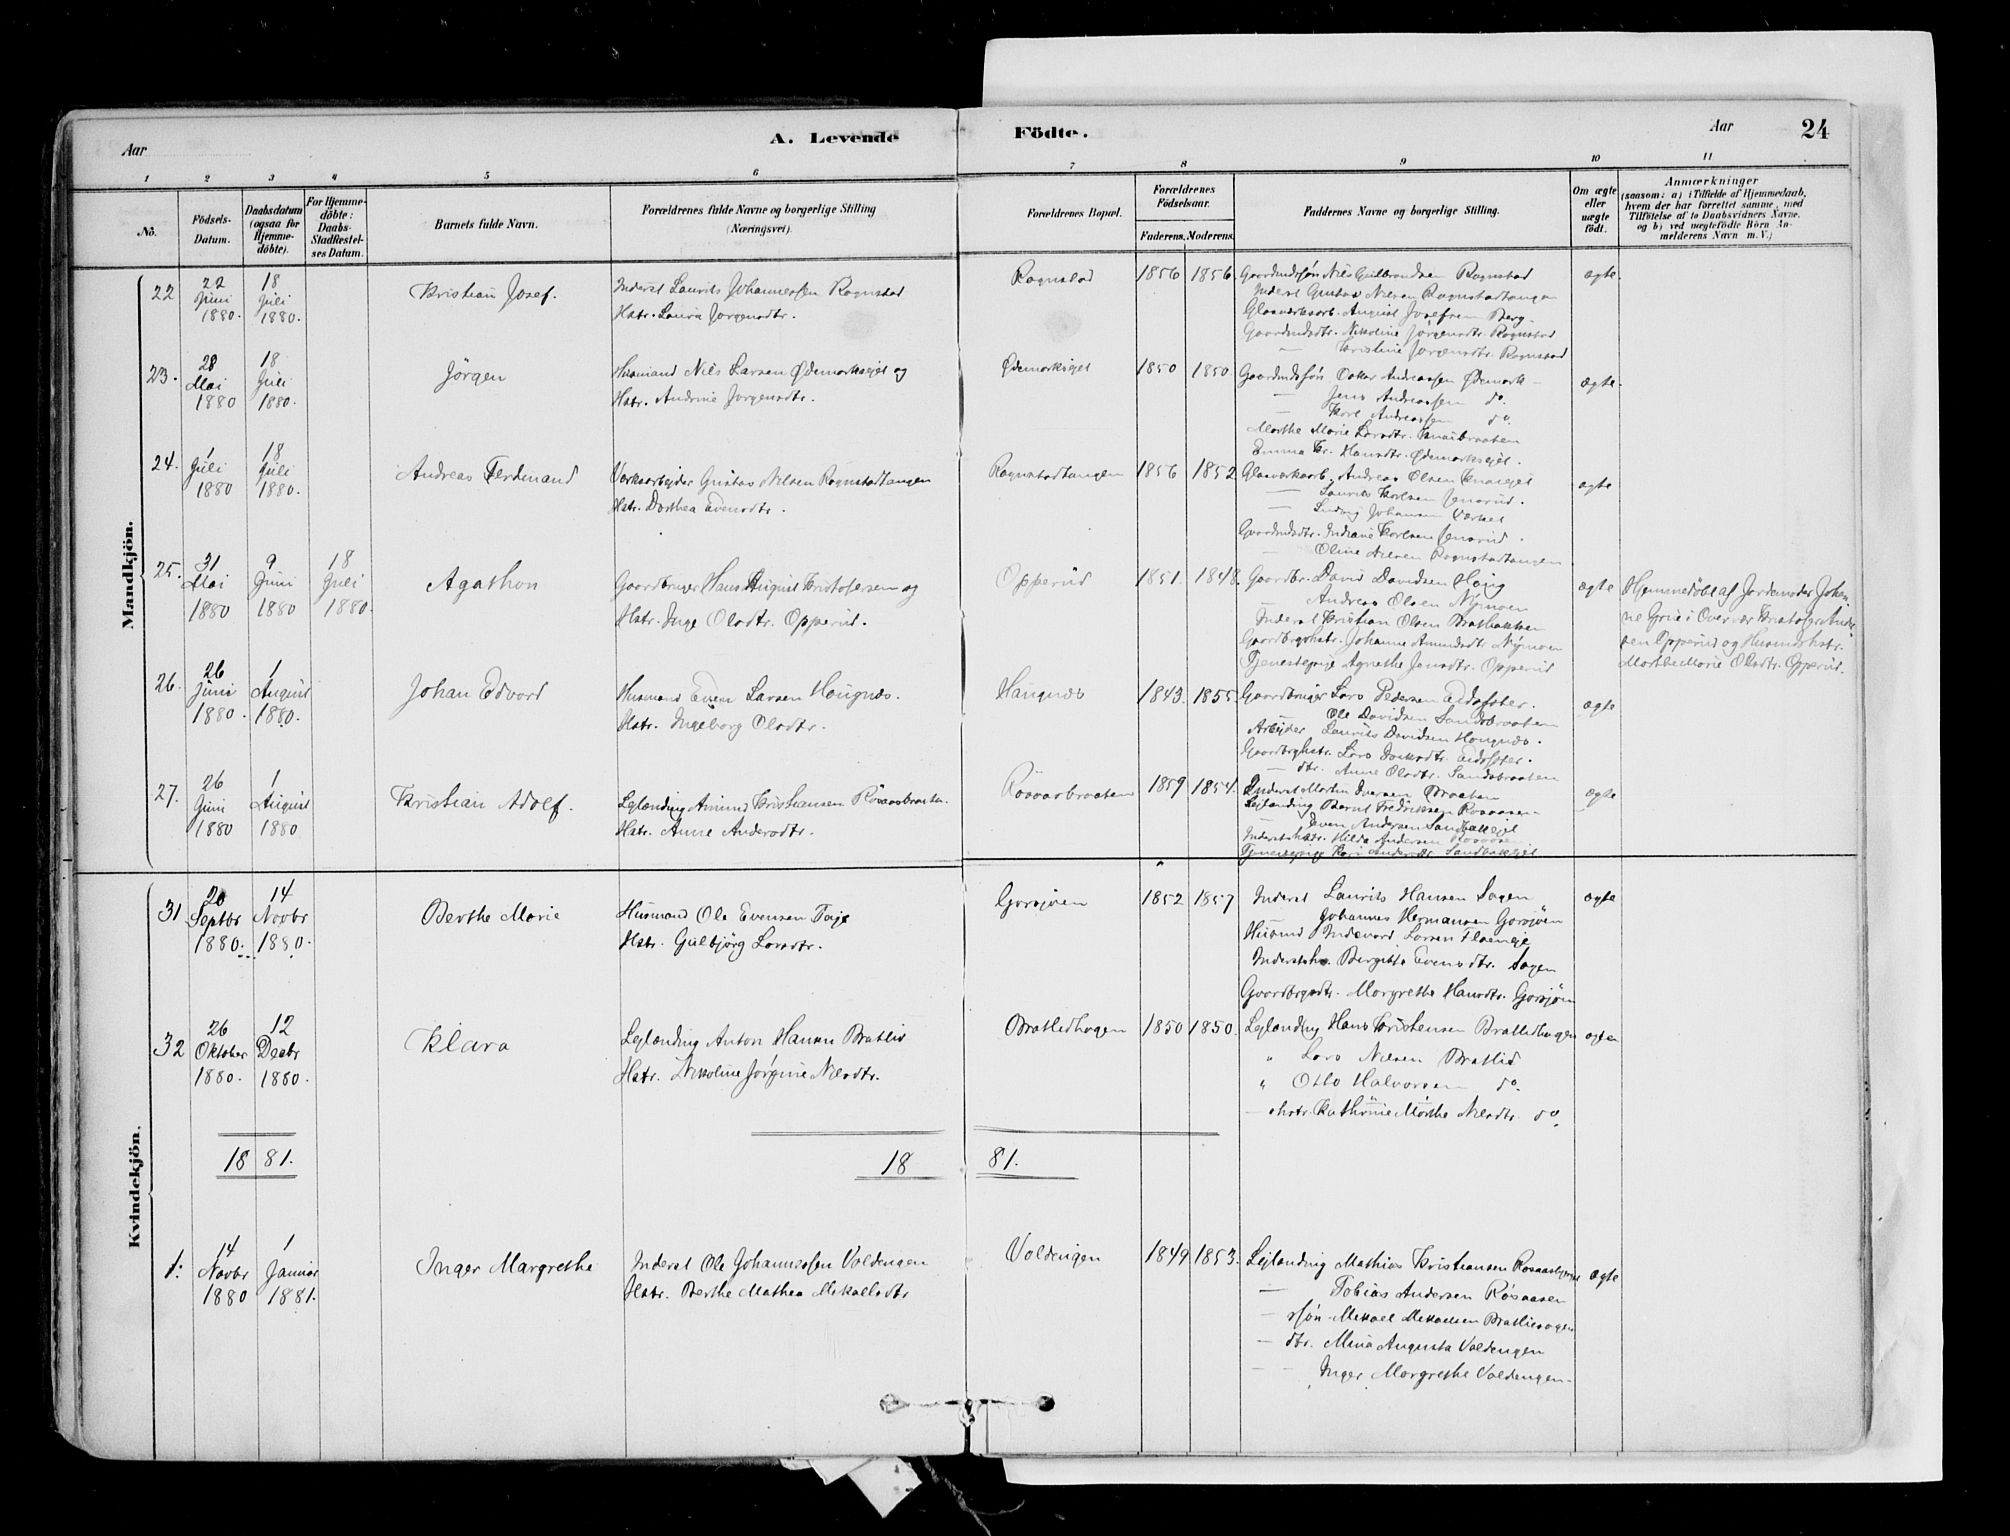 A. Levende Födte.
Aar
Aar 24
1 2 3 4 5 6 7 8 9 10 11
No.
Födsels-Datum.
Daabsdatum (ogsaa for Hjemme-döbte).
For Hjemme-döbte: Daabs-Stadfæstel-ses Datum.
Barnets fulde Navn.
Forældrenes fulde Navne og borgerlige Stilling (Næringsvei).
Forældrenes Bopæl.
Forældrenes Födselsaar.
Faderens. Moderens.
Faddernes Navne og borgerlige Stilling.
Om ægte eller uægte födt.
Anmærkninger
(saasom: a) i Tilfælde af Hjemmedaab,
hvem der har forrettet samme, med
Tilföielse af to Daabsvidners Navne,
og b) ved uægtefödte Börn An-
melderens Navn m. V.)
Mandkjön.
22 22 Juni 1880. 18 Juli 1880. Kristian Josef. Inderst Laurits Johannessen Rognstad
Hstr. Laura Jørgensdtr.
Rognstad 1856 1856. ægte.
Gaardmdssøn Nils Gulbrandsen Rognstad
Inderst Gustav Nilsen Rognstadtangen
Glasværksarb. August Josefsen Berg.
Gaardmdsdtr. Nikoline Jørgensdtr. Rognstad
— Kristine Jorgensdtr. Rognstad
23. 28 Mai 1880 18 Juli 1880. Jörgen Husmand Nils Larsen Ødemarksejet og
Hstr. Andrine Jorgensdtr.
Ødemarksejet 1850 1850. ægte.
Gaardmdssøn Oskar Andreassen Ødemark —
— Jens Andreassen do.
— Karl Andreassen do.
Marthe Marie Larsdtr.
Emma Kr. Hansdtr. Ødemarksejet.
24. 1 Juli 1880 18 Juli 1880. Andreas Ferdinand Værksarbejder Gustav Nilsen Rognstadtangen
Hstr. Dorthea Evensdtr.
Rognstadtangen 1856 1852 ægte
Glasværksarb. Andreas Olsen
— Laurits Karlsen Jensrud.
— Ludvig Johansen Værket
Gaardmdsdtr. Indiane Karlsen Jensrud.
— Oline Nilsen Rognstadtangen
25. 31 Mai 1880 9 Juni 1880 18 Juli 1880. Agathon Gaardbruger Hans August Kristofersen og
Hstr. Inge Olsdtr. Opperud.
Opperud 1851. 1848. ægte
Gaardbr. David Davidsen Haug
— Andreas Olsen Nÿmoen
Inderst Kristian Olsen Bratbakken
Gaardbrgshstr. Johanne Amundsdtr Nÿmoen
Tjenestepige Agnethe Jensdtr. Opperud
Hjemmedöbt af Jordemoder Johan-
ne Grue i Overvær Kristofer Andr.
sen Opperud og Husmdshstr.
Marthe Marie Olsdtr. Opperud.
26. 26 Juni 1880. 1 August 1880. Johan Edvard Husmand Even Larsen Haugnæs.
Hstr. Ingeborg Olsdtr.
Haugnæs 1843. 1855. ægte
Gaardbruger Lars Pedersen Eidsfster.
— Ole Davidsen Sandsbraaten
Arbejder Laurits Davidsen Haugnæs.
Gaardbrghstr. Eidsfster.
— dtr. Anne Olsdtr. Sandsbraaten
27. 26 Juni 1880 1 August 1880 Kristian Adolf. Lejlænding Amund Kristiansen Rösaasbraaten.
Hstr. Anne Andersdtr.
Rösaasbraaten 1859 1854. ægte
Inderst Martin Iversen Braaten
Lejlænding Bernt Fredriksen Rosaasen
— Even Andersen Sandbakejet
Inderstshstr. Hilda Andersen Rosaasen
Tjenestepige Kari Andersdtr. Sandbakejet
Kvindekjön.
31 20 Septbr 1880. 14 Novbr 1880. Berthe Marie Husmand Ole Evensen Taje
Hstr. Gulbjörg Larsdtr.
Gorsjöen 1852 1857 ægte
Inderst Laurits Hansen Sagen
Johannes Hermansen Gorsjöen
Husmd Larsen
Inderstshs. Birgitte Evensdtr. Sagen
Gaardbrgsdtr. Margrethe Hansdtr. Gorsjöen
32 26 Oktober 1880. 12 Decbr 1880. Klara Lejlænding Anton Hansen Bratlid
Hstr. Nikoline Jørgine Nilsdtr.
Bratlidhagen 1850 1850. ægte
Lejlænding Hans Kristensen Bratlidhagen
" Lars Nilsen Bratlid
" Otto Halvorsen do.
— shstr. Kathrine Marthe Nilsdtr. do.
18 81. 18 81.
1. 14 Novbr 1880 1 Januar 1881. Inger Margrethe Inderst Ole Johannessen Valdengen
Hstr. Berthe Mathea Mikaelsdtr
Valdengen 1849 1853. ægte
Lejlænding Mathias Kristiansen
— Tobias Andersen Rösaasen
— ssön Mikael Mikaelsen
— dtr. Mina Augusta Valdengen
— — Inger Margrethe Valdengen.